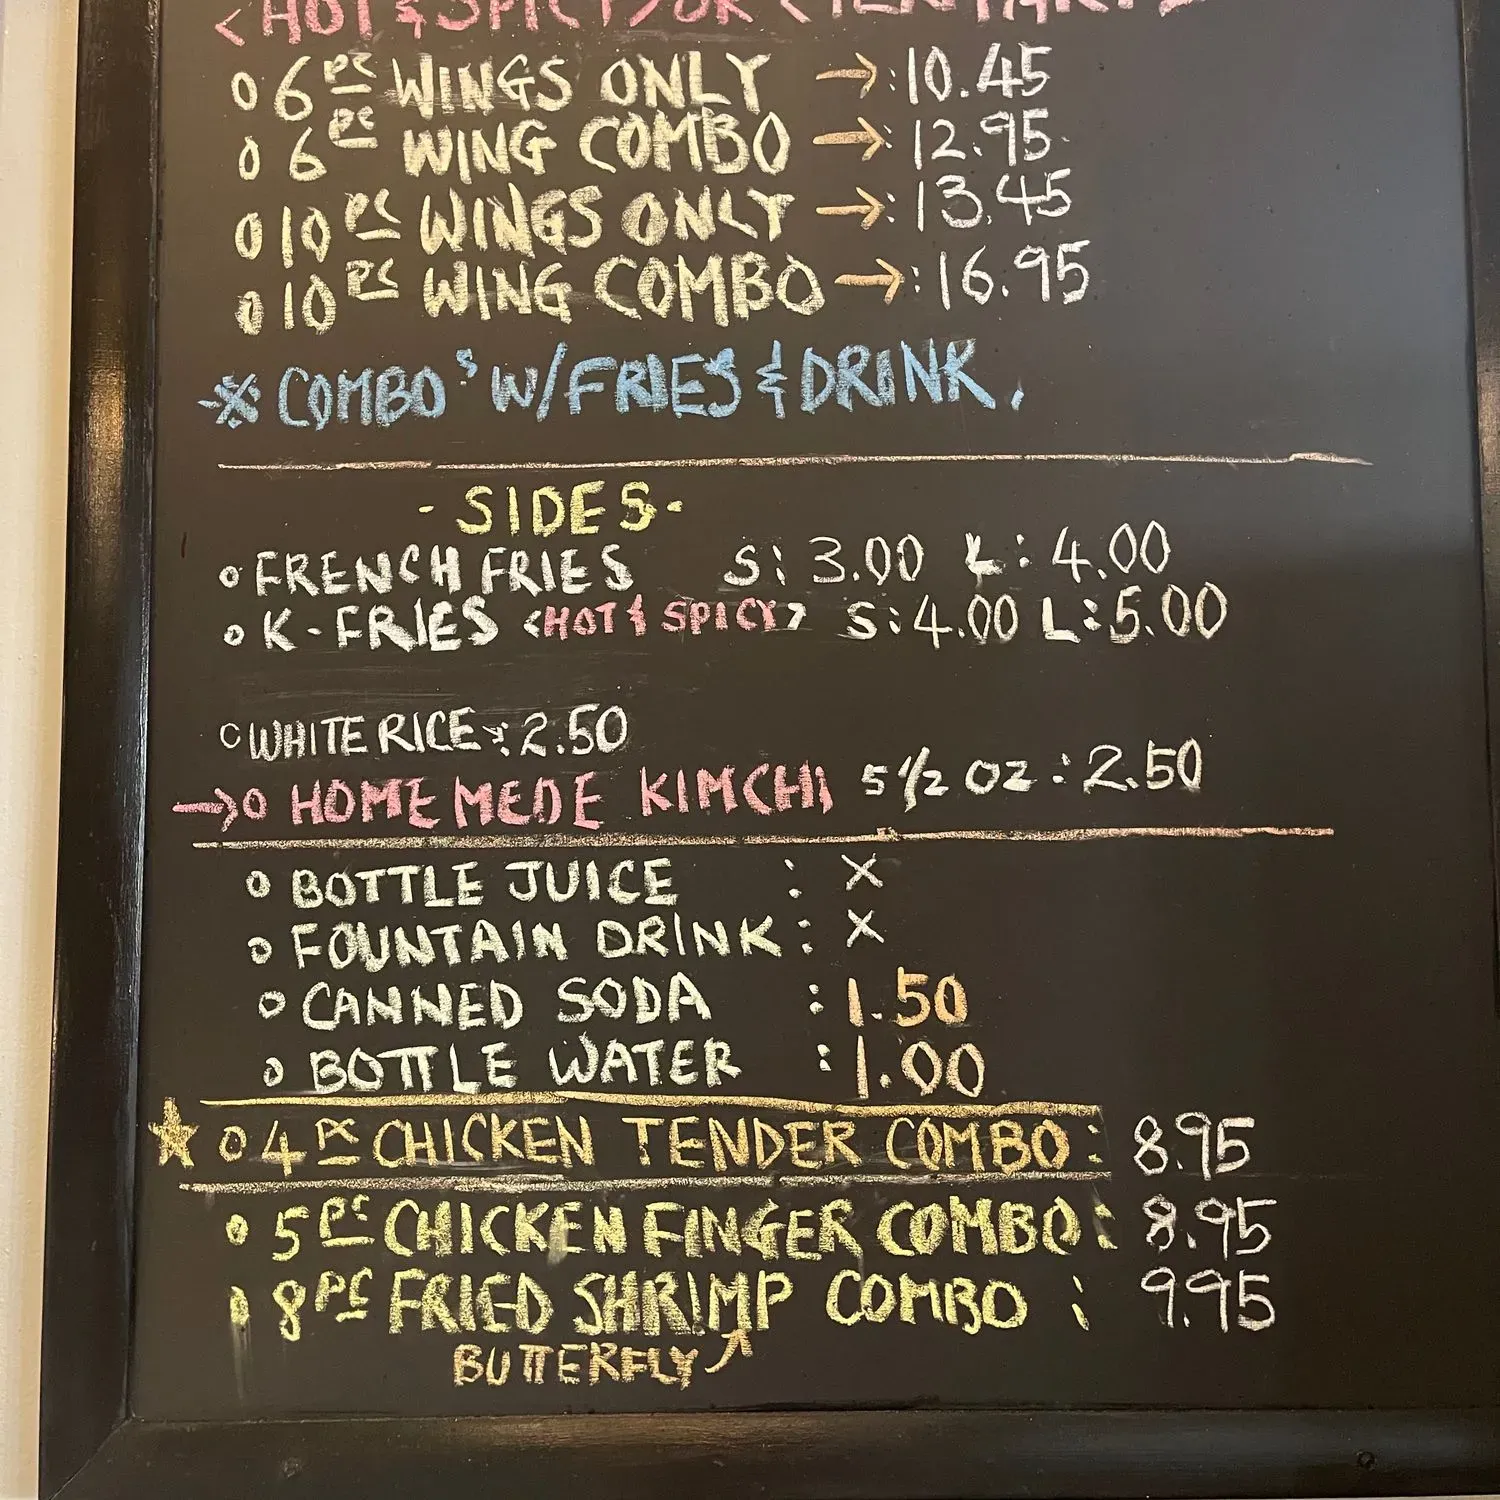 <HOT & SPICY> OR <TERIYAKI>
o 6 PC WINGS ONLY →: 10.45
o 6 PC WING COMBO →: 12.95
o 10 PC WINGS ONLY →: 13.45
o 10 PC WING COMBO →: 16.95
※ COMBO'S W/FRIES & DRINK,
- SIDES -
o FRENCH FRIES S: 3.00 L: 4.00
o K-FRIES <HOT & SPICY> S: 4.00 L: 5.00
o WHITE RICE : 2.50
→ o HOMEMEDE KIMCHI 5 1/2 OZ : 2.50
o BOTTLE JUICE : X
o FOUNTAIN DRINK : X
o CANNED SODA : 1.50
o BOTTLE WATER : 1.00
★ o 4 PC CHICKEN TENDER COMBO : 8.95
o 5 PC CHICKEN FINGER COMBO : 8.95
o 8 PC FRIED SHRIMP COMBO : 9.95
BUTTERFLY ↗